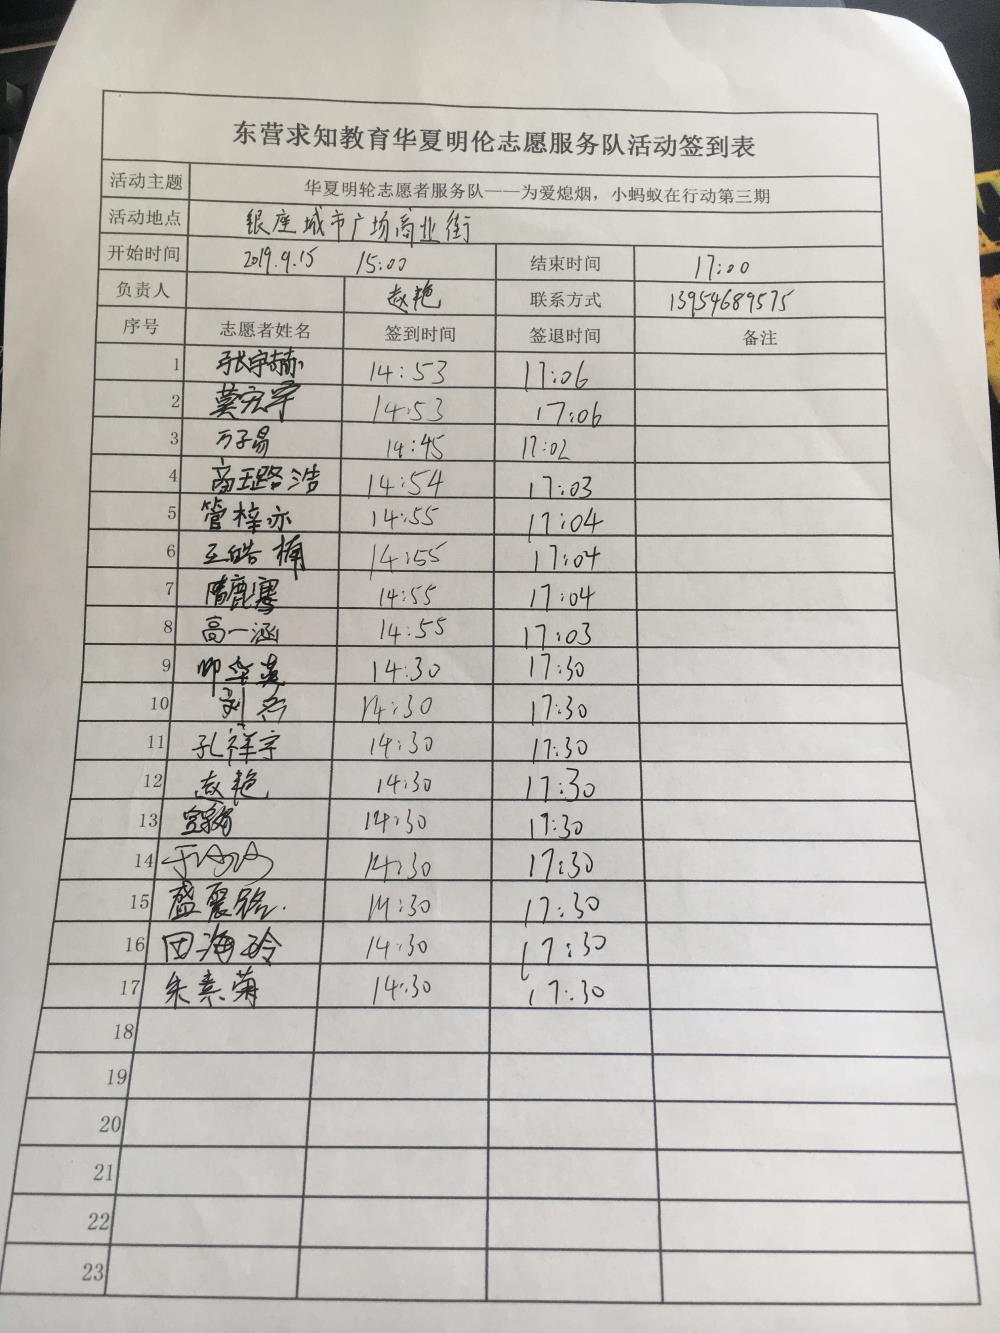 东营求知教育华夏明伦志愿服务队活动签到表
活动主题 华夏明轮志愿者服务队——为爱熄烟，小蚂蚁在行动第三期
活动地点 银座城市广场商业街
开始时间 2019.9.15 15:00 结束时间 17:00
负责人 赵艳 联系方式 13954689575
序号 志愿者姓名 签到时间 签退时间 备注
1 14:53 17:06
2 莫宏宇 14:53 17:06
3 万子易 14:45 17:02
4 高珏路浩 14:54 17:03
5 管梓亦 14:55 17:04
6 王皓楠 14:55 17:04
7 14:55 17:04
8 高一涵 14:55 17:03
9 14:30 17:30
10 14:30 17:30
11 孔祥宇 14:30 17:30
12 赵艳 14:30 17:30
13 14:30 17:30
14 14:30 17:30
15 14:30 17:30
16 田海玲 14:30 17:30
17 朱素菊 14:30 17:30
18
19
20
21
22
23